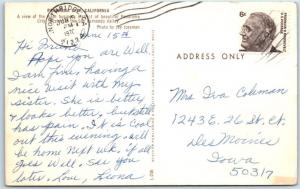 CALIFORNIA
A view of the
of beautiful Panorama
Photo by
6c
UNITED STATES
ADDRESS ONLY
June 15th
Hi
Hope you are Well.
I am fine, having a
nice visit with my
sister. She is better,
& looks better, but still
has pain. It is cool
out this evening. Will
be home Next wk. if all
goes Well. See you
later. Love, Leona
Mrs Iva Coleman
1243 E. 26 St. Ct.
Des Moines
Iowa
50317